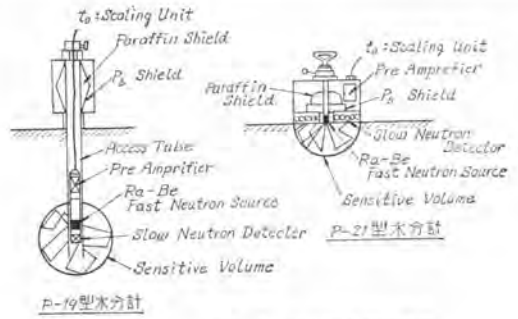 to : Scaling Unit
Paraffin Shield
Pb Shield
Access Tube
Pre Amprifier
Ra-Be
Fast Neutron Source
Slow Neutron Detecler
Sensitive Volume
P-19型水分計
to : Scaling Unit
Pre Amprefier
Paraffin
Shield
Pb Shield
Slow Neutron
Detector
Ra-Be
Fast Neutron Source
Sensitive Volume
P-21型水分計